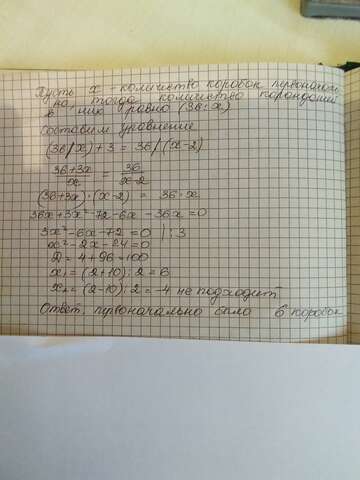 Пусть x - количество коробок первоначаль
но, тогда количество карандашей
в них равно (36:x)
Составим уравнение
(36/x)+3 = 36/(x-2)
36+3x/x = 36/x-2
(36+3x)·(x-2) = 36·x
36x+3x²-72-6x-36x=0
3x²-6x-72=0 |:3
x²-2x-24=0
D=4+96=100
x₁=(2+10):2=6
x₂=(2-10):2=-4 не подходит
Ответ: первоначально было 6 коробок